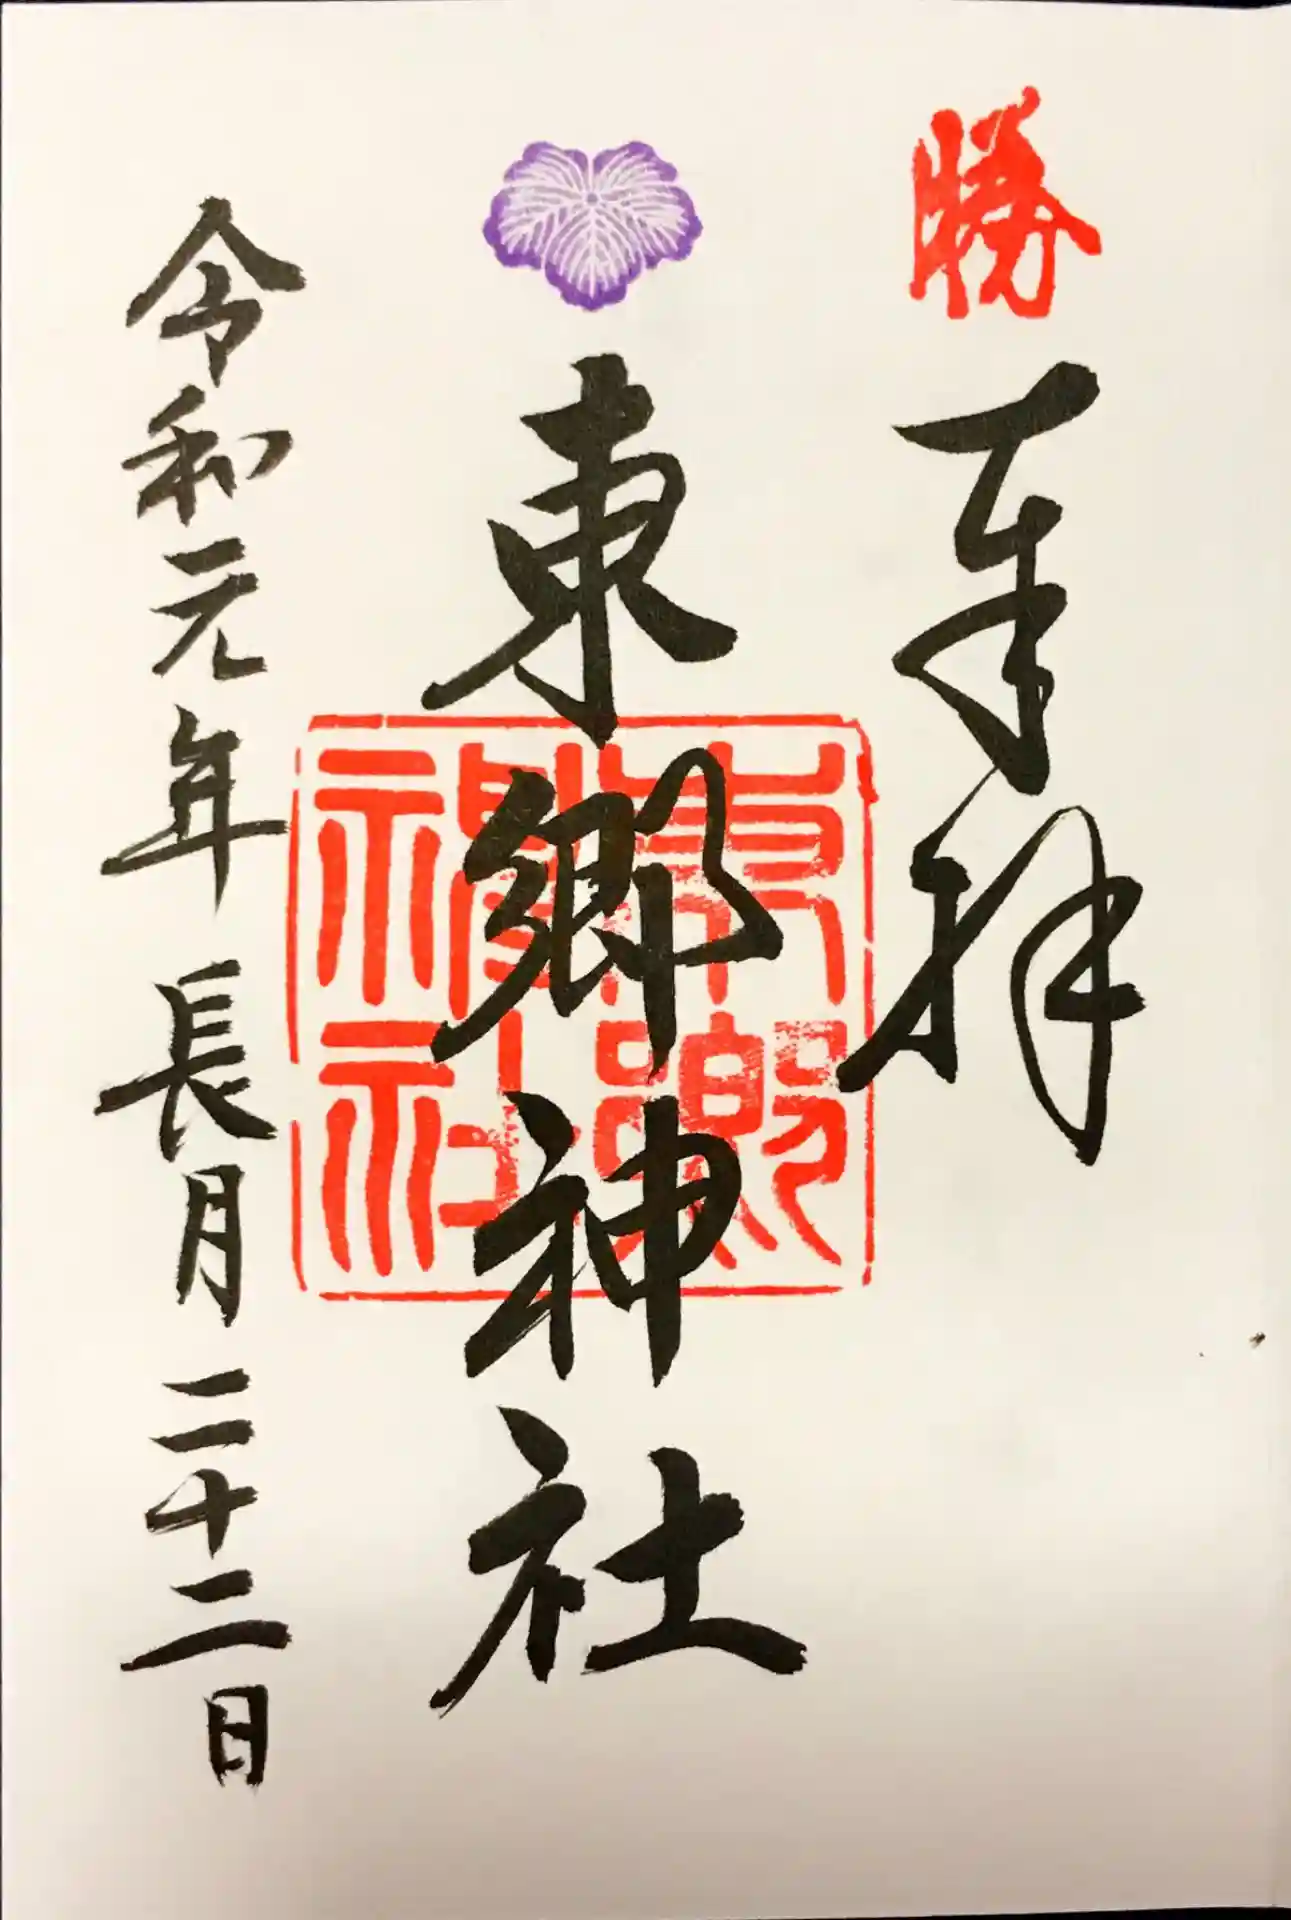 勝
奉拝
東郷神社
東郷神社
令和元年長月二十二日